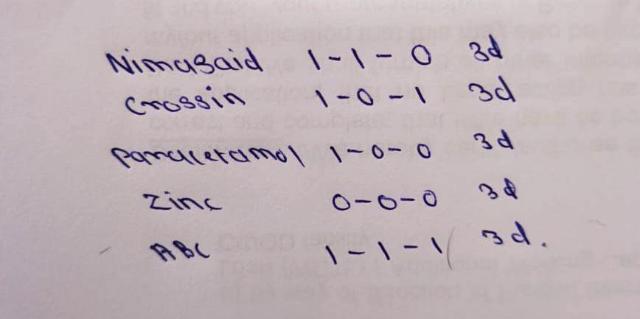 Nimasaid 1-1-0 3d
Crossin 1-0-1 3d
Paracetamol 1-0-0 3d
Zinc 0-0-0 3d
ABC 1-1-1 3d.